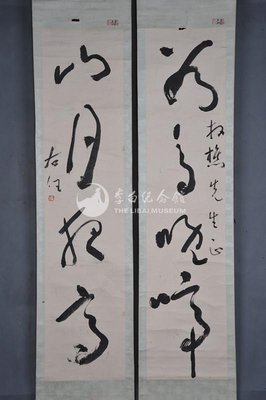 鸟晚啼
叔樵先生正
山月夜高
右任
李白纪念馆
THE LIBAI MUSEUM